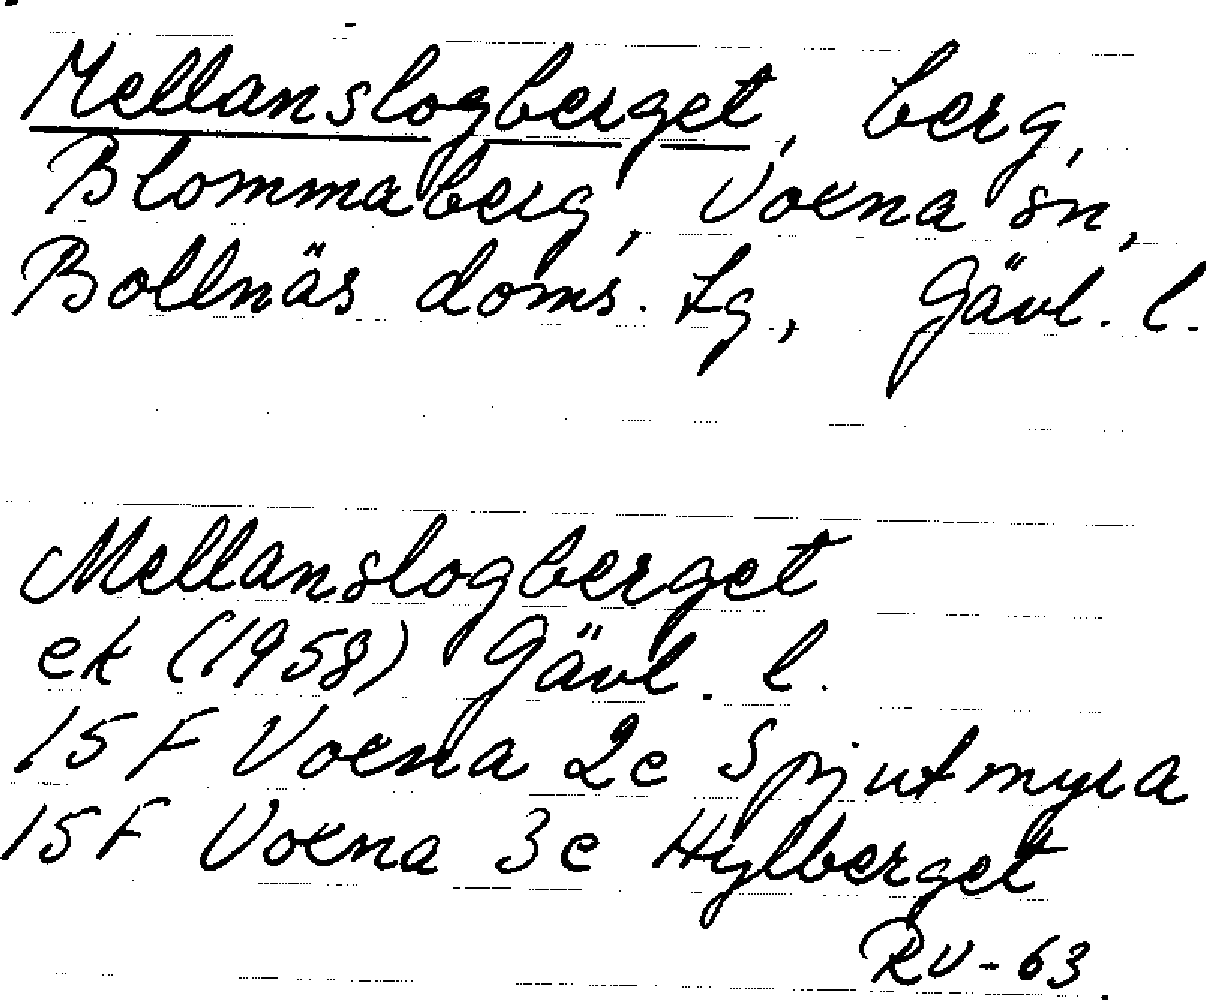 Mellanslogberget, berg,
Blommaberg, Voxna sn,
Bollnäs doms. tg, Gävl. l.
Mellanslogberget
ek (1958) Gävl. l.
15 F Voxna 2e Spjutmyra
15 F Voxna 3e Hylberget
RV-63